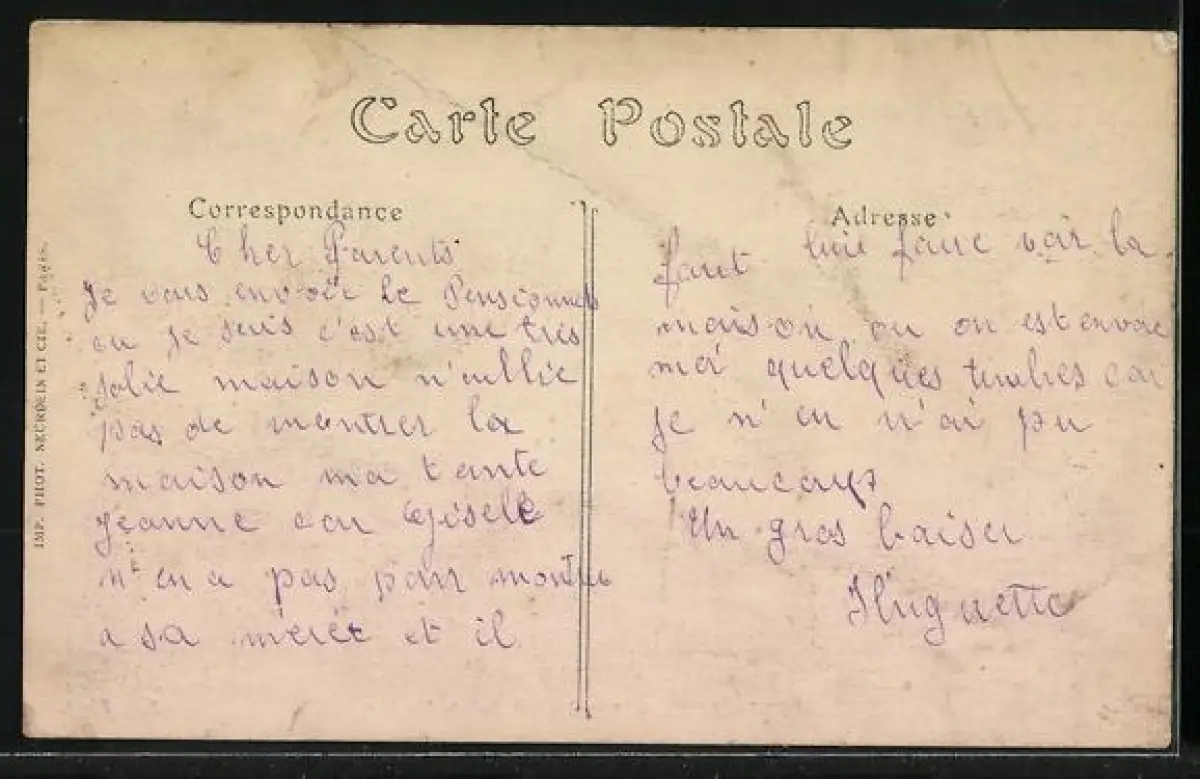 Carte Postale
Correspondance
Cher Parents
Je vous envoëe le Pensionnes
ou je suis c'est une très
jolie maison n'oublie
pas de montrer la
maison ma tante
Jeanne car Gisèle
n'en a pas pour montre
a sa mère et il
Adresse
faut lui faire voir la
maison ou on est envoe
moi quelques timbres car
je n'en n'ai pu
beaucoup
Un gros baiser
Huguette
IMP. PHOT. NEURDEIN ET CIE. — Paris.